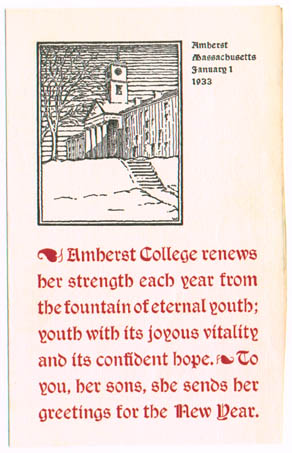 Amherst
Massachusetts
January 1
1933
Amherst College renews
her strength each year from
the fountain of eternal youth;
youth with its joyous vitality
and its confident hope. To
you, her sons, she sends her
greetings for the New Year.